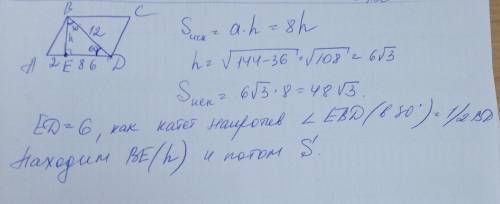 B C
12
30
h
60
A 2 E 8 6 D
Sиск = a·h = 8h
h = √144-36 = √108 = 6√3
Sиск = 6√3·8 = 48√3.
ED=6, как катет напротив ∠EBD (в 30°) = 1/2 BD
Находим BE(h) и потом S.